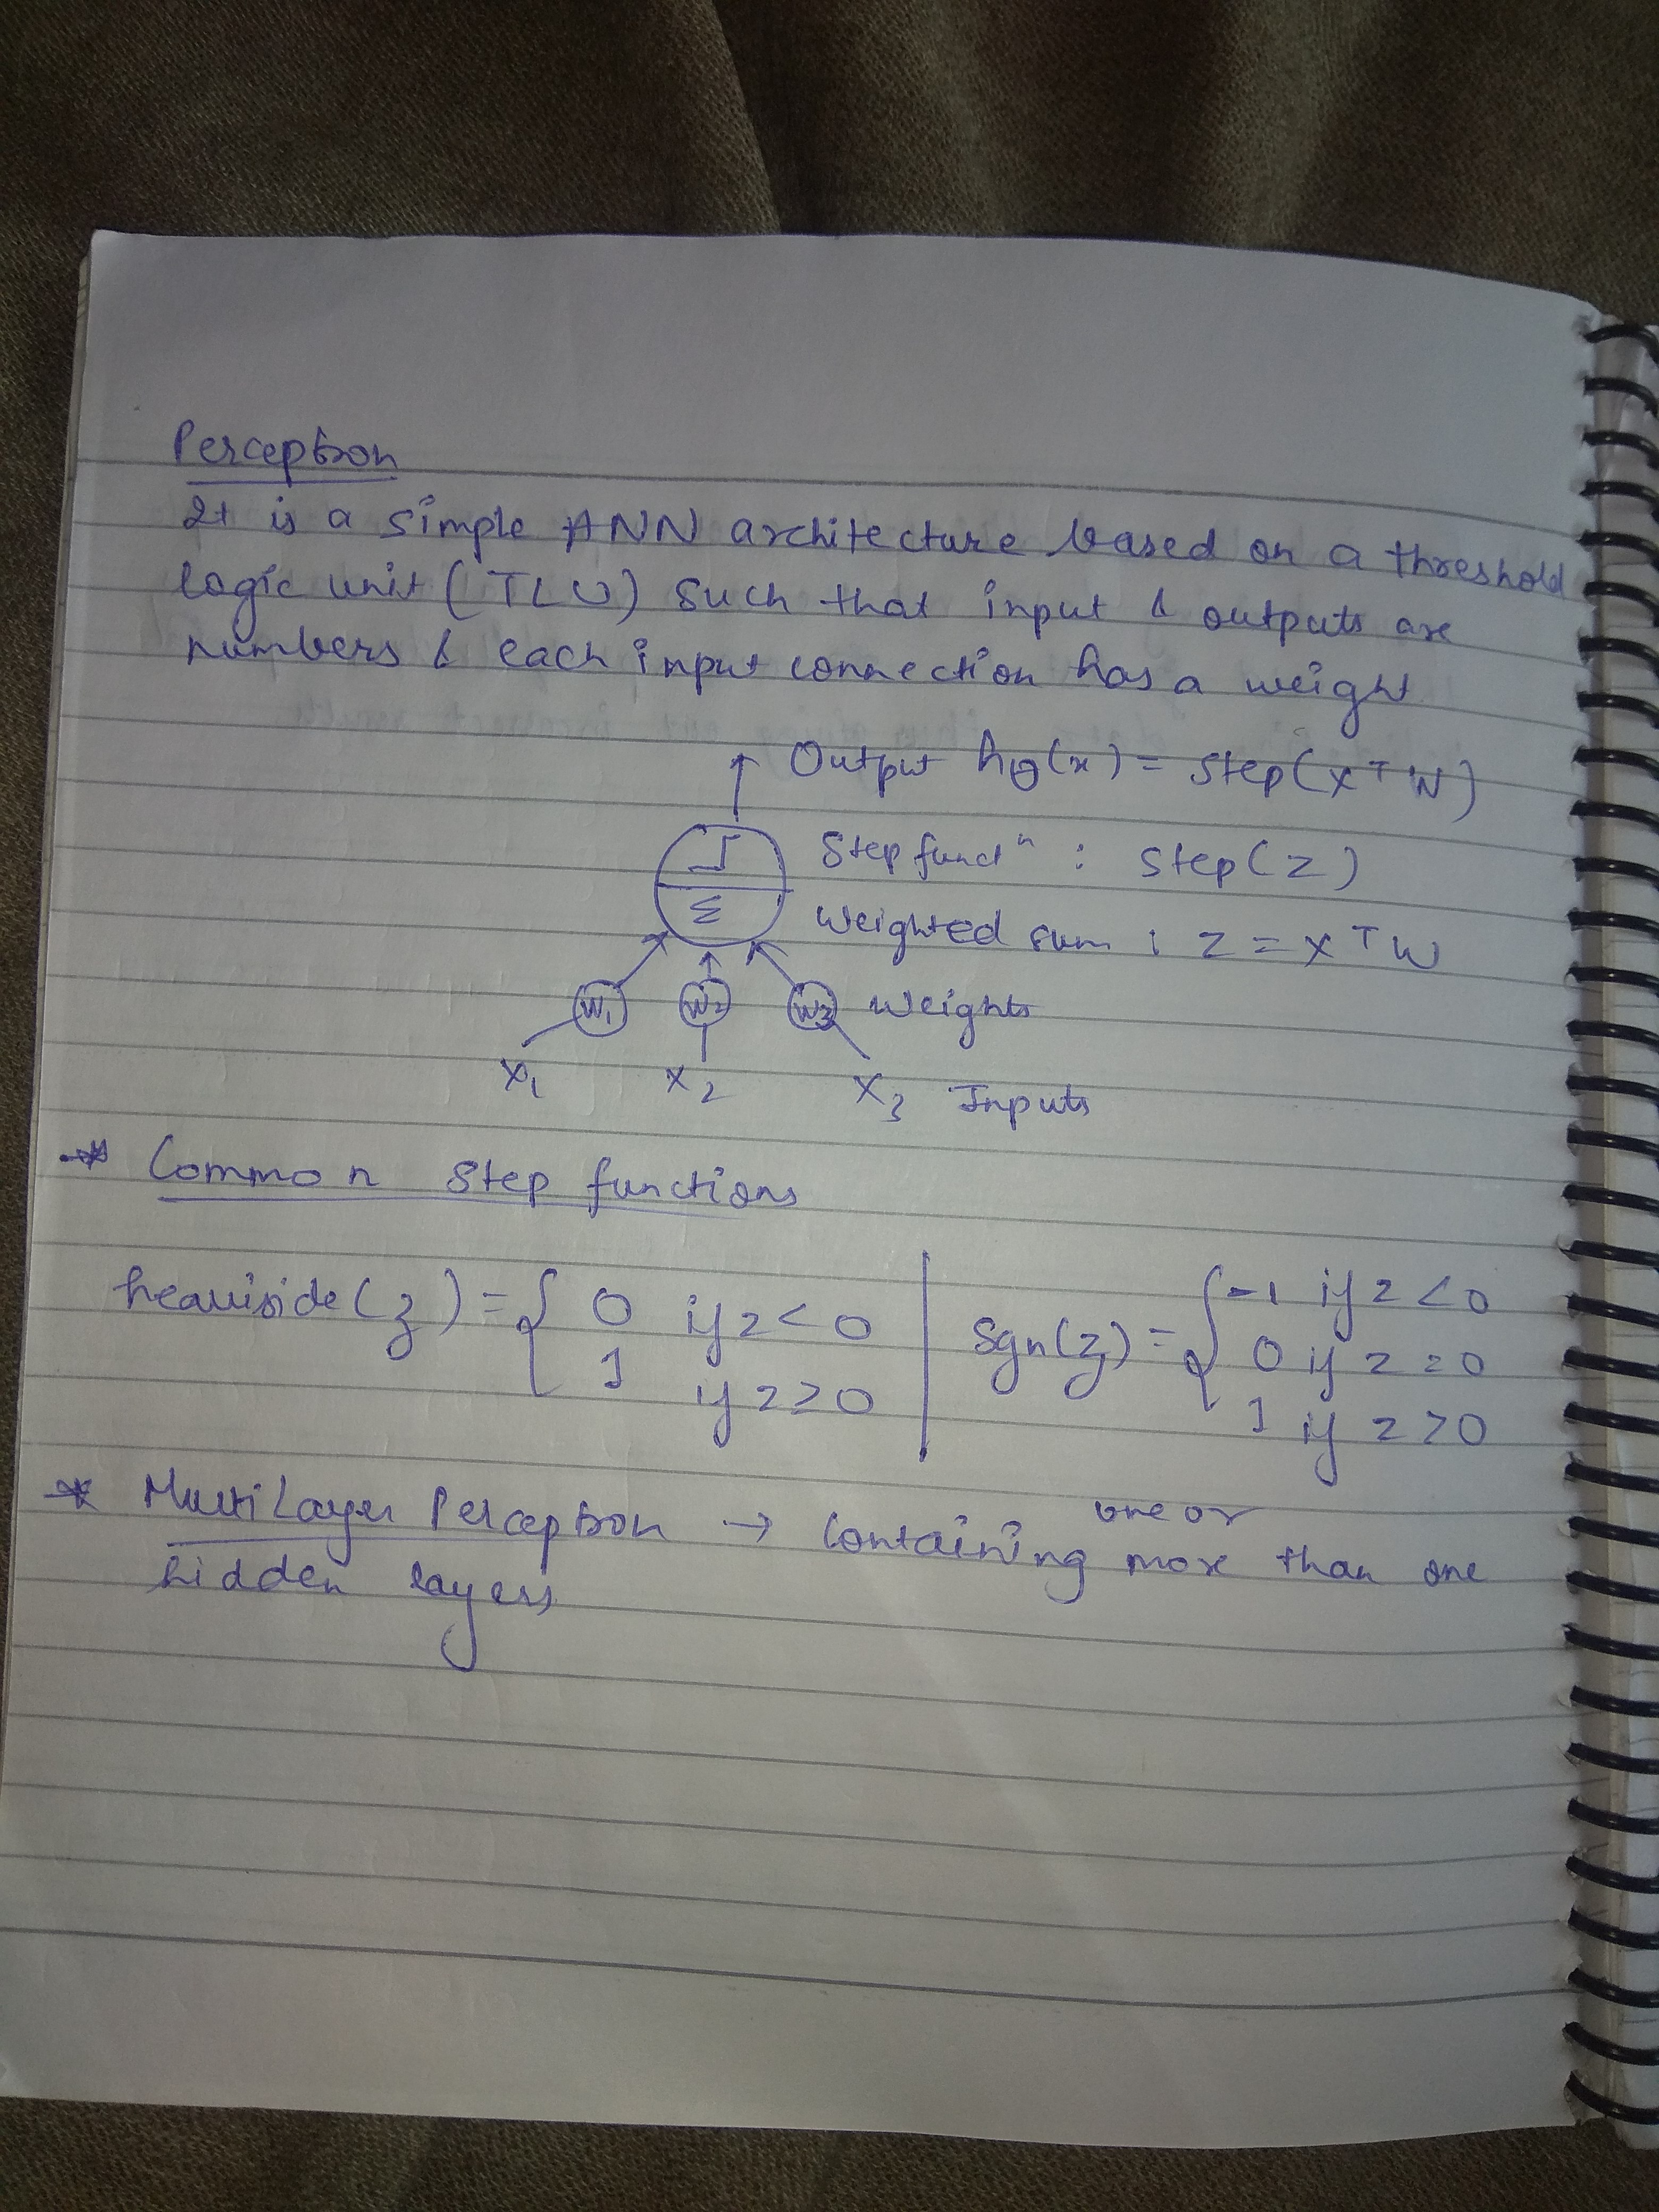 Perceptron
It is a simple ANN architecture based on a threshold
logic unit (TLU) such that input & outputs are
numbers & each input connection has a weight
Output hθ(x) = step(xᵀW)
Step functⁿ : step(z)
Σ Weighted sum : z = xᵀW
W₁ W₂ W₃ Weights
X₁ X₂ X₃ Inputs
* Common step functions
heaviside(z) = { 0 if z < 0
1 if z ≥ 0
sgn(z) = { -1 if z < 0
0 if z = 0
1 if z > 0
* MultiLayer Perceptron → containing one or more than one
hidden layers